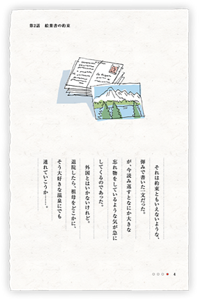 第2話　絵葉書の約束
それは約束ともいえないような、
弾みで書いた一文だった。
が、今読み返すとなにか大きな
忘れ物をしているような気が急に
してくるのであった。
外国とはいかないけれど、
退院したら、祖母をどこかに、
そう大好きな温泉にでも
連れていこうか――。
4